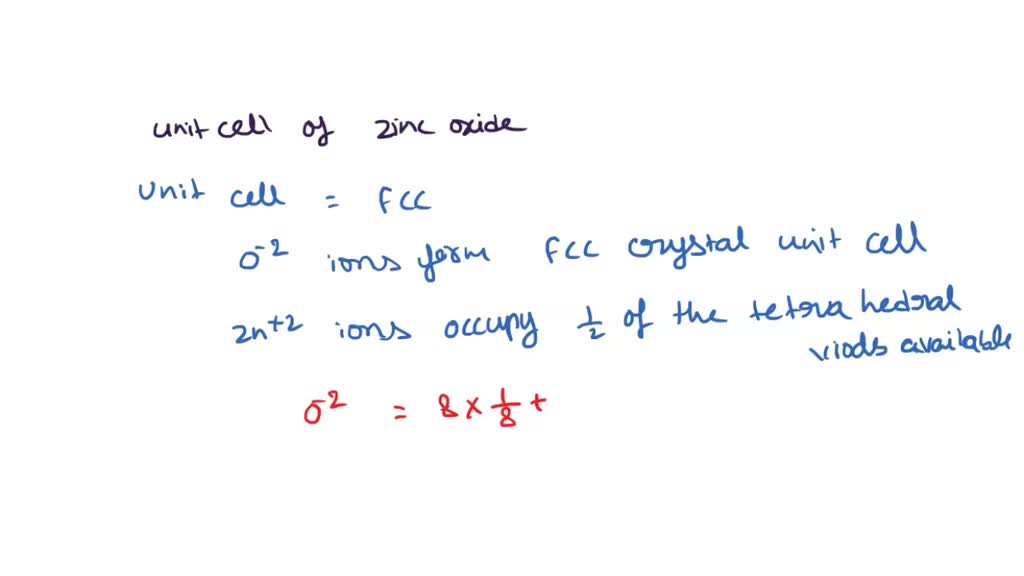 unit cell of zinc oxide
Unit cell = FCC
O⁻² ions form FCC crystal unit cell
Zn⁺² ions occupy 1/2 of the tetra hedral
viods available
O⁻² = 8 × 1/8 +